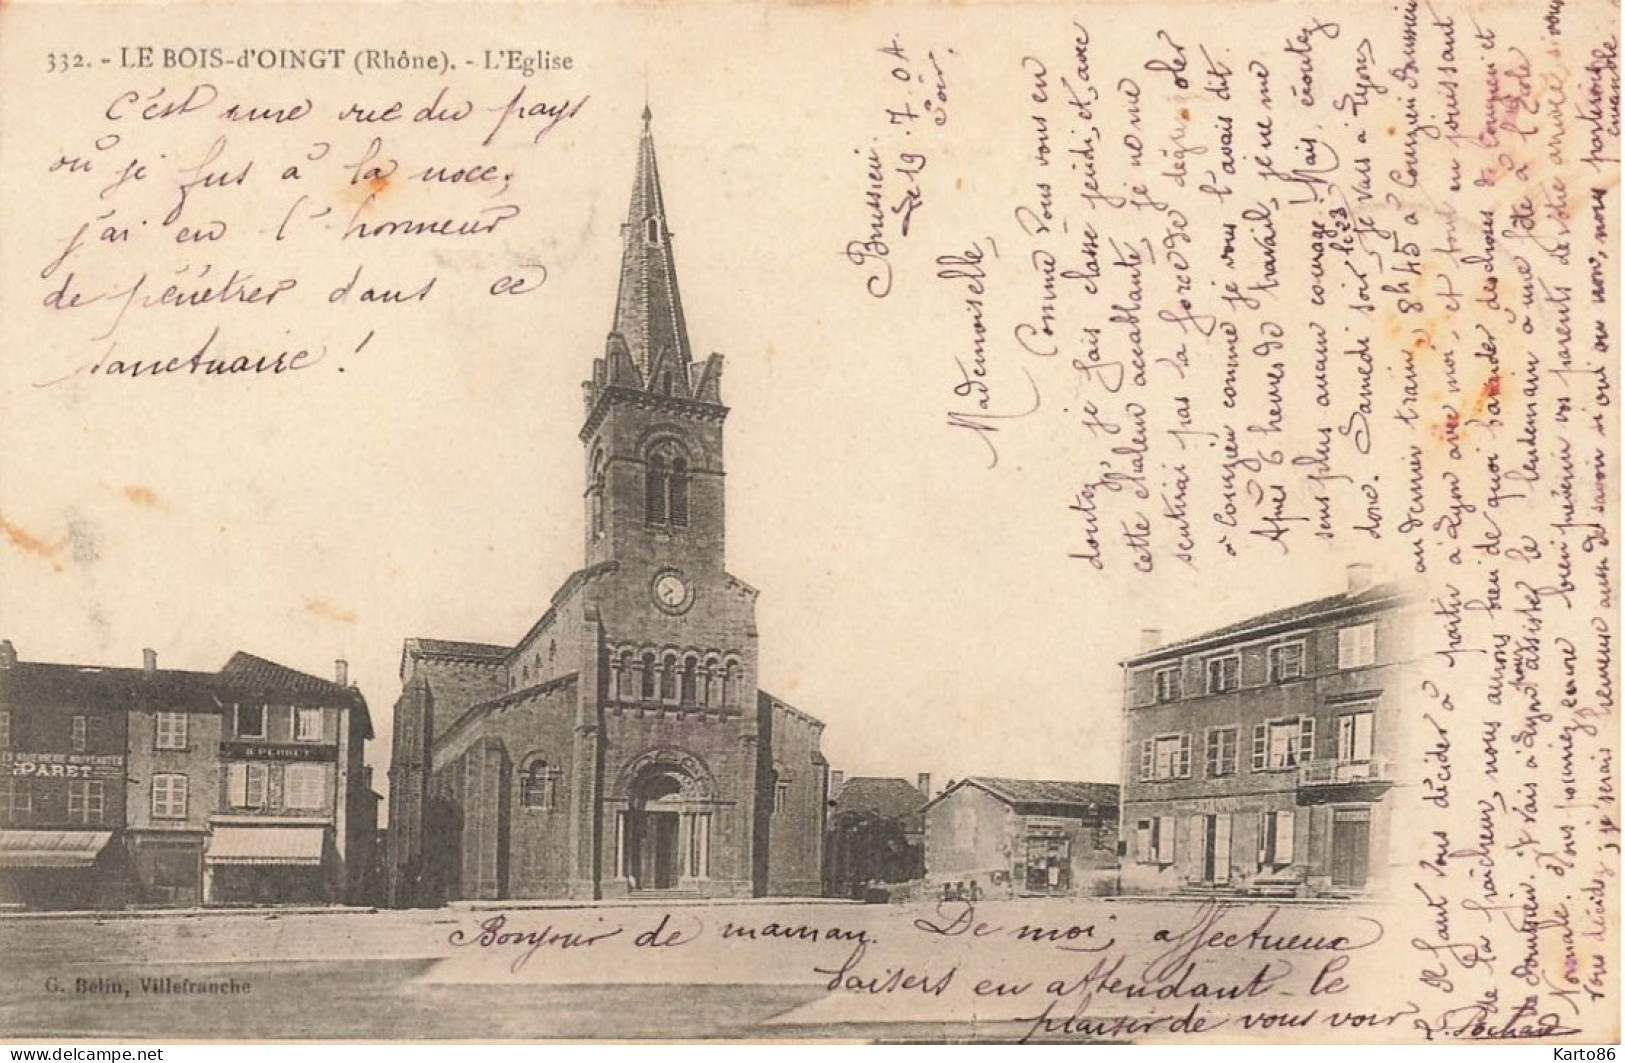 332. - LE BOIS-d'OINGT (Rhône). - L'Eglise
C'est une vue du pays
où je fus à la noce,
j'ai eu l'honneur
de pénétrer dans ce
sanctuaire !
Bussieu
Le 19.7.04.
Soir.
Mademoiselle,
Comme vous vous en
doutez je fais classe jeudi, et, avec
cette chaleur accablante, je ne me
sentirai pas la force de dégringoler
à Courzieu comme je vous l'avais dit.
Après 6 heures de travail, je ne me
sens plus aucun courage ! Mais, écoutez
donc. Samedi soir le 23, je vais à Lyon
au dernier train 8h45 à Courzieu
Il faut vous décider à partir à Lyon avec moi, et tout en jouissant
de la fraîcheur, nous aurons bien de quoi bavarder des choses de Courzieu et
je vais à Lyon pour assister le lendemain à une fête à l'École
Normale. Vous pourriez encore bien prévenir vos parents de votre arrivée si vous
vous décidez ; je serais heureuse aussi de savoir si oui ou non, nous partirons
ensemble.
B. PERRET
PARET
Bonjour de maman. De moi, affectueux
baisers en attendant le
plaisir de vous voir
G. Belin, Villefranche
Karto86
Delcampe.net